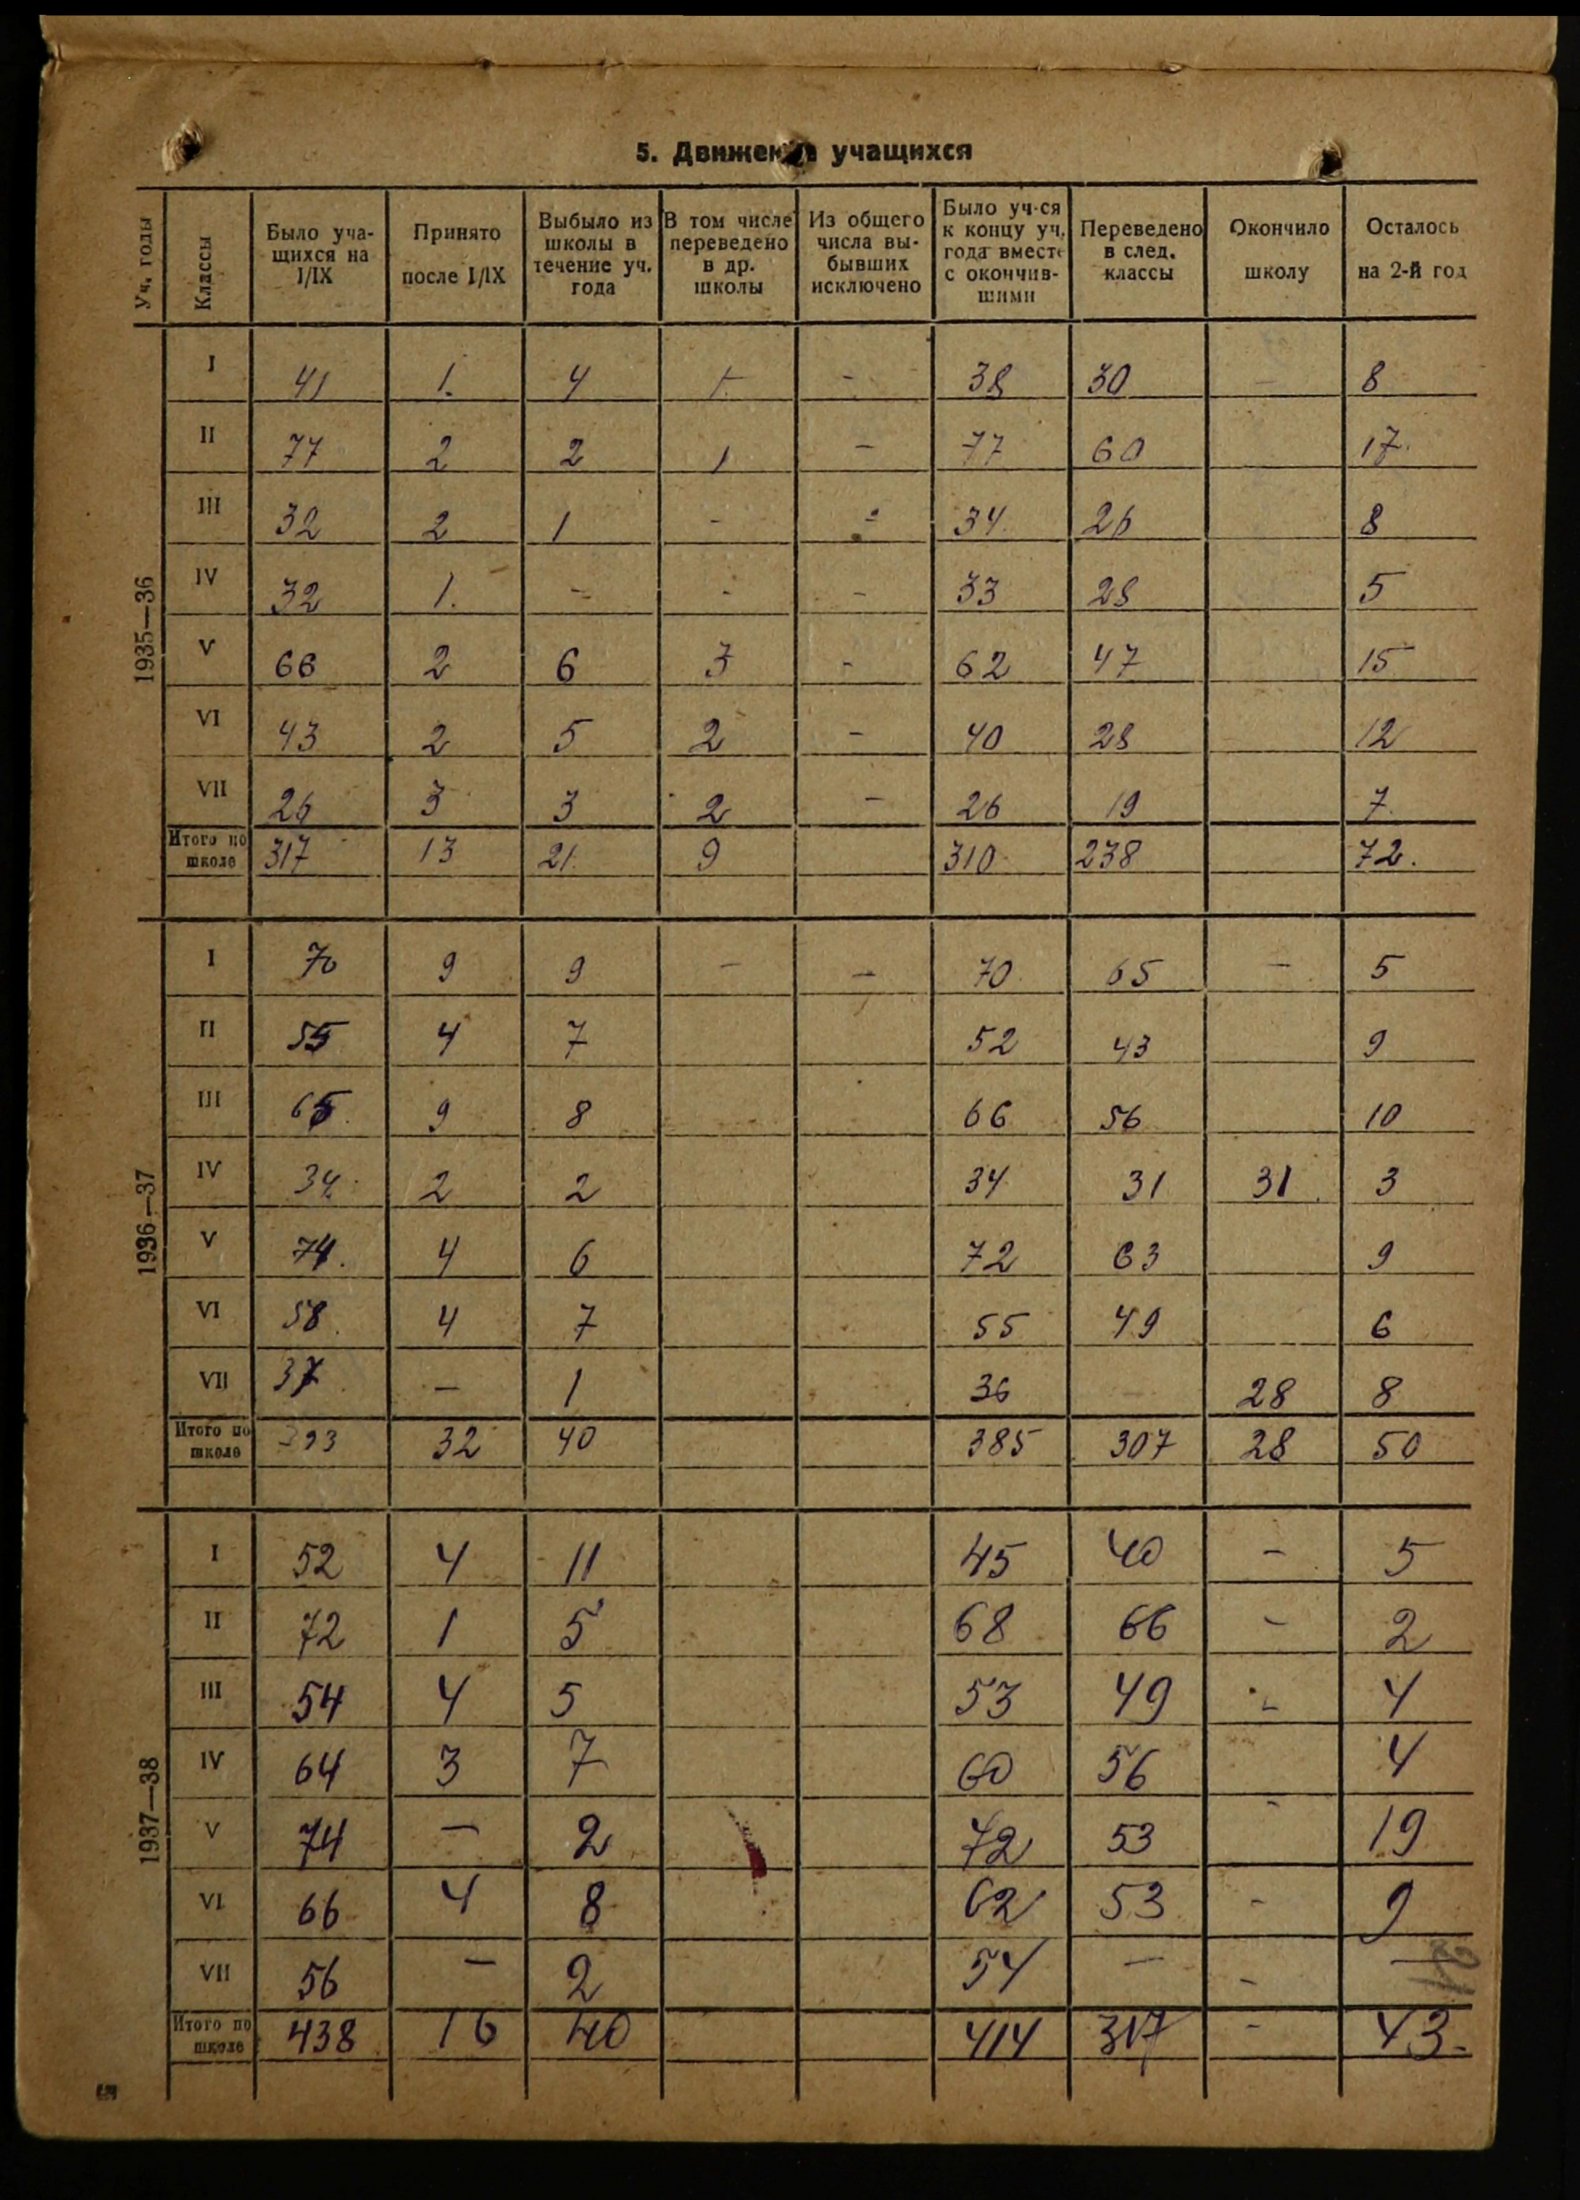 5. Движение учащихся
Уч. годы | Классы | Было учащихся на I/IX | Принято после I/IX | Выбыло из школы в течение уч. года | В том числе переведено в др. школы | Из общего числа выбывших исключено | Было уч-ся к концу уч. года вместе с окончившими | Переведено в след. классы | Окончило школу | Осталось на 2-й год
1935—36
I | 41 | 1. | 4 | 1. | - | 38 | 30 | - | 8
II | 77 | 2 | 2 | 1 | - | 77 | 60 | | 17.
III | 32 | 2 | 1 | - | - | 34. | 26 | | 8
IV | 32 | 1. | - | - | - | 33 | 28 | | 5
V | 66 | 2 | 6 | 3 | - | 62 | 47 | | 15
VI | 43 | 2 | 5 | 2 | - | 40 | 28 | | 12
VII | 26 | 3 | 3 | 2 | - | 26 | 19 | | 7.
Итого по школе | 317 | 13 | 21. | 9 | | 310 | 238 | | 72.
1936—37
I | 70 | 9 | 9 | - | - | 70 | 65 | - | 5
II | 55 | 4 | 7 | | | 52 | 43 | | 9
III | 65 | 9 | 8 | | | 66 | 56 | | 10
IV | 34. | 2 | 2 | | | 34 | 31 | 31. | 3
V | 74. | 4 | 6 | | | 72 | 63 | | 9
VI | 58. | 4 | 7 | | | 55 | 49 | | 6
VII | 37 | - | 1 | | | 36 | | 28 | 8
Итого по школе | 393 | 32 | 40 | | | 385 | 307 | 28 | 50
1937—38
I | 52 | 4 | 11 | | | 45 | 40 | - | 5
II | 72 | 1 | 5 | | | 68 | 66 | - | 2
III | 54 | 4 | 5 | | | 53 | 49 | - | 4
IV | 64 | 3 | 7 | | | 60 | 56 | | 4
V | 74 | - | 2 | | | 72 | 53 | - | 19
VI | 66 | 4 | 8 | | | 62 | 53 | - | 9
VII | 56 | - | 2 | | | 54 | - | - | -
Итого по школе | 438 | 16 | 40 | | | 414 | 317 | - | 43.